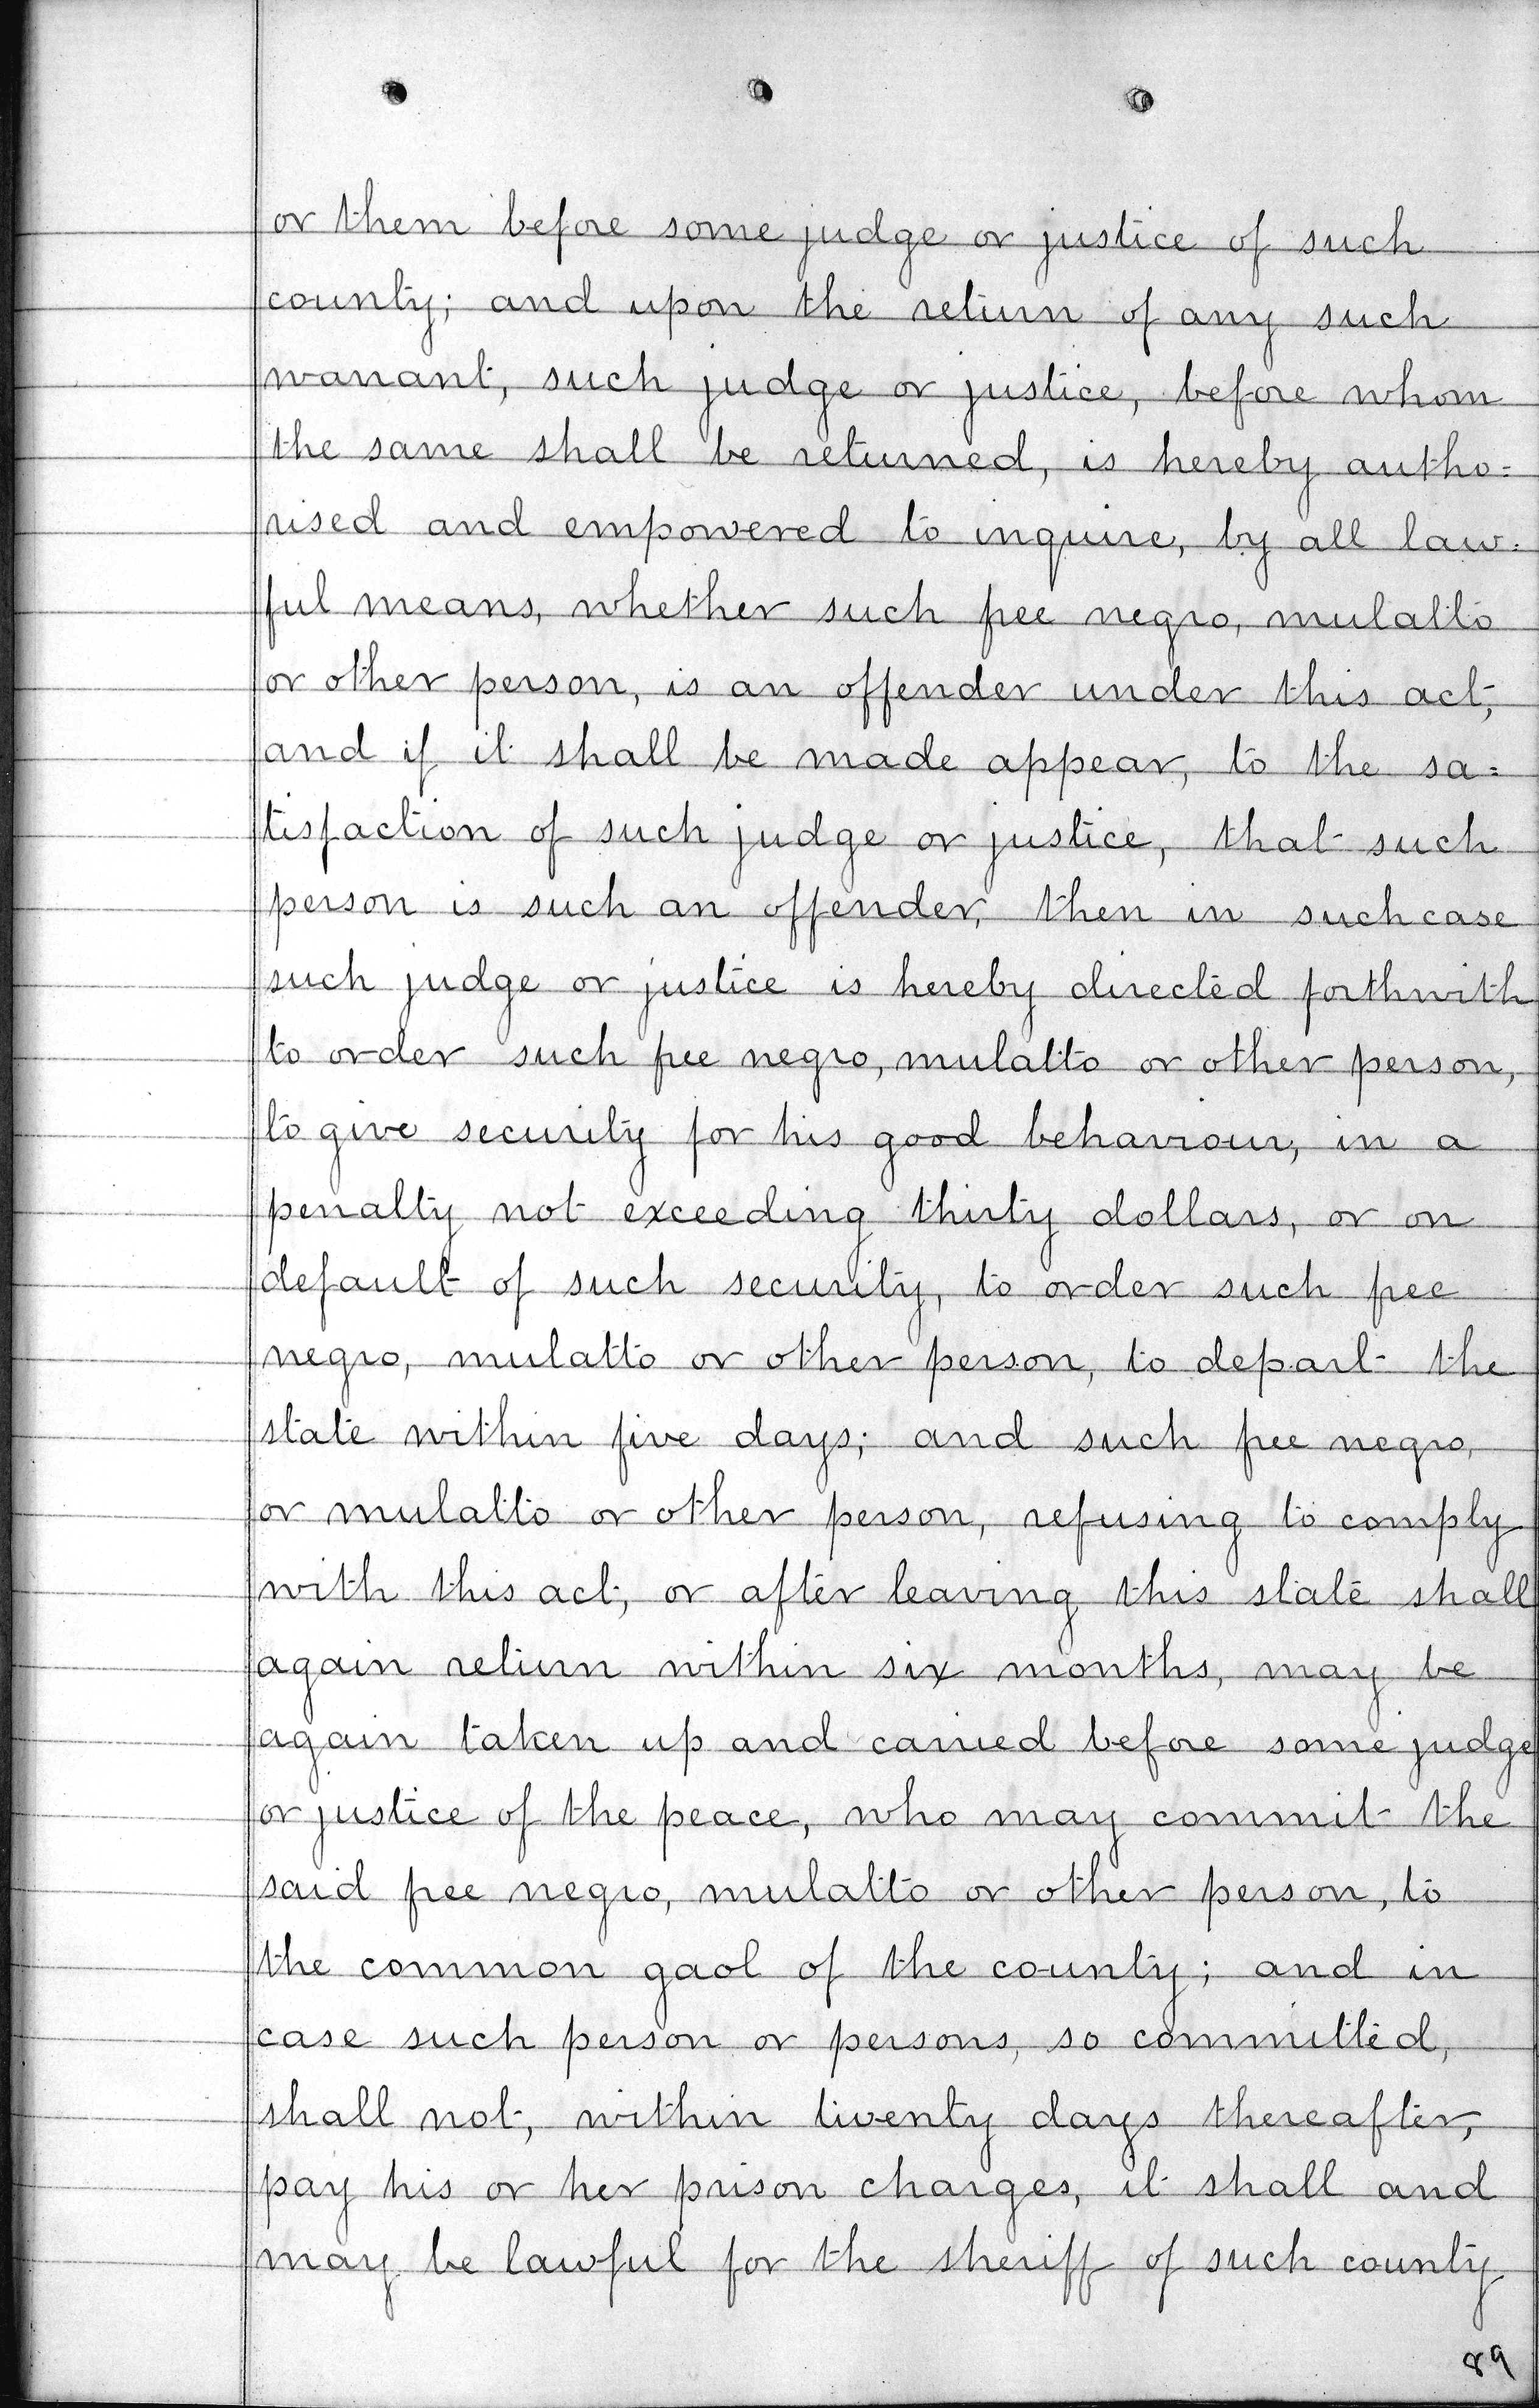 or them before some judge or justice of such
county; and upon the return of any such
warrant, such judge or justice, before whom
the same shall be returned, is hereby autho=
rised and empowered to inquire, by all law=
ful means, whether such free negro, mulatto
or other person, is an offender under this act,
and if it shall be made appear, to the sa=
tisfaction of such judge or justice, that such
person is such an offender, then in such case
such judge or justice is hereby directed forthwith
to order such free negro, mulatto or other person,
to give security for his good behaviour, in a
penalty not exceeding thirty dollars, or on
default of such security, to order such free
negro, mulatto or other person, to depart the
state within five days; and such free negro,
or mulatto or other person, refusing to comply
with this act, or after leaving this state shall
again return within six months, may be
again taken up and carried before some judge
or justice of the peace, who may commit the
said free negro, mulatto or other person, to
the common gaol of the county; and in
case such person or persons, so committed,
shall not, within twenty days thereafter,
pay his or her prison charges, it shall and
may be lawful for the sheriff of such county
89